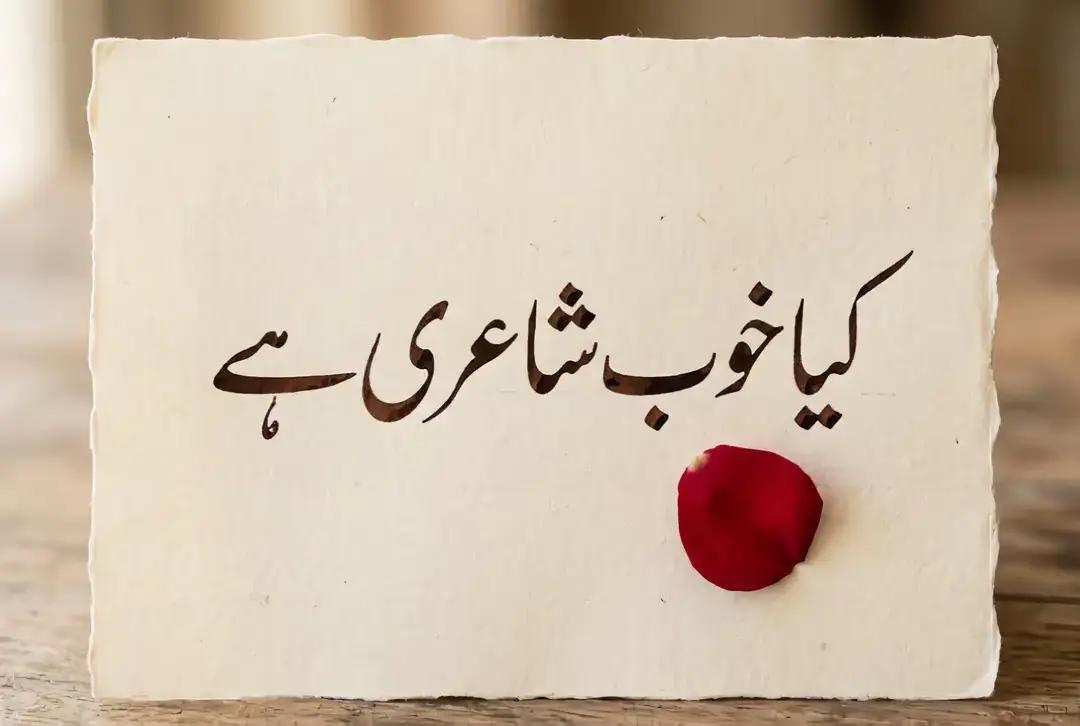 کیا خوب شاعری ہے